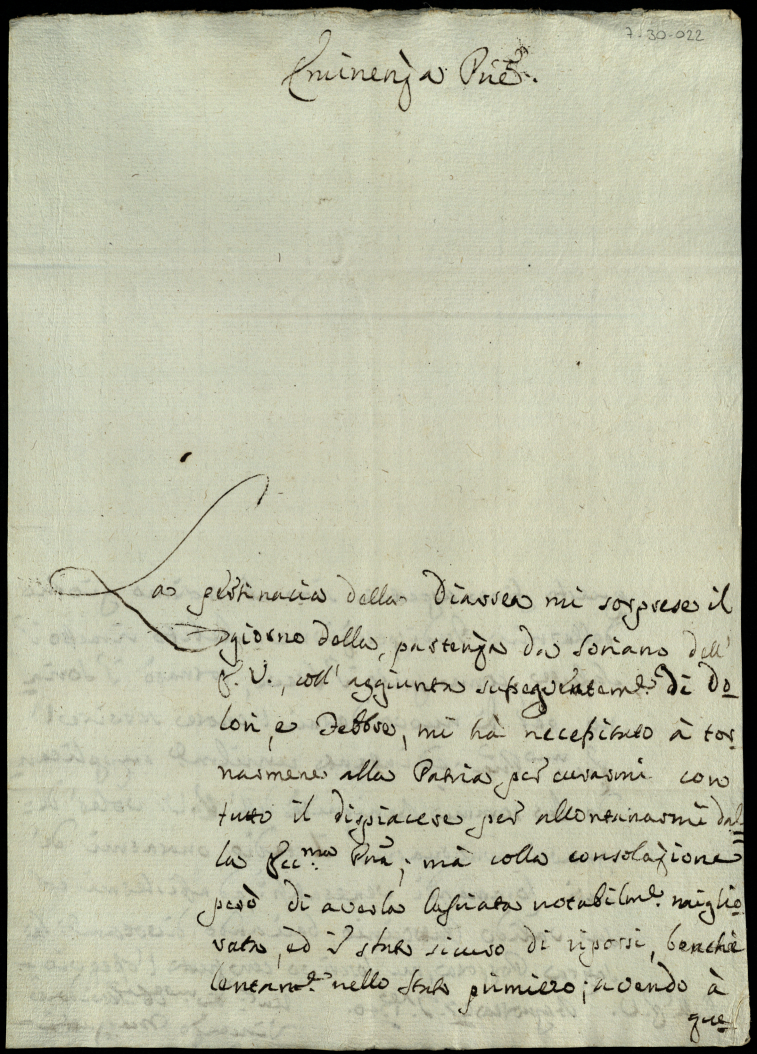 7.30-022
Eminenza Pne.
La pertinacia della Diarrea mi sorprese il
giorno della partenza da Soriano dell'
E. V., coll' aggiunta susseguentem.e di Do=
lori, e Febbre, mi hà necessitato à tor=
narmene alla Patria per curarmi con
tutto il dispiacere per allontanarmi dal=
la Ecc.ma Pna; mà colla consolazione
però di averla lasciata notabilm.e miglio=
rata, ed in stato sicuro di riporsi, benchè
lentam.e nello stato primiero; avendo à
que=